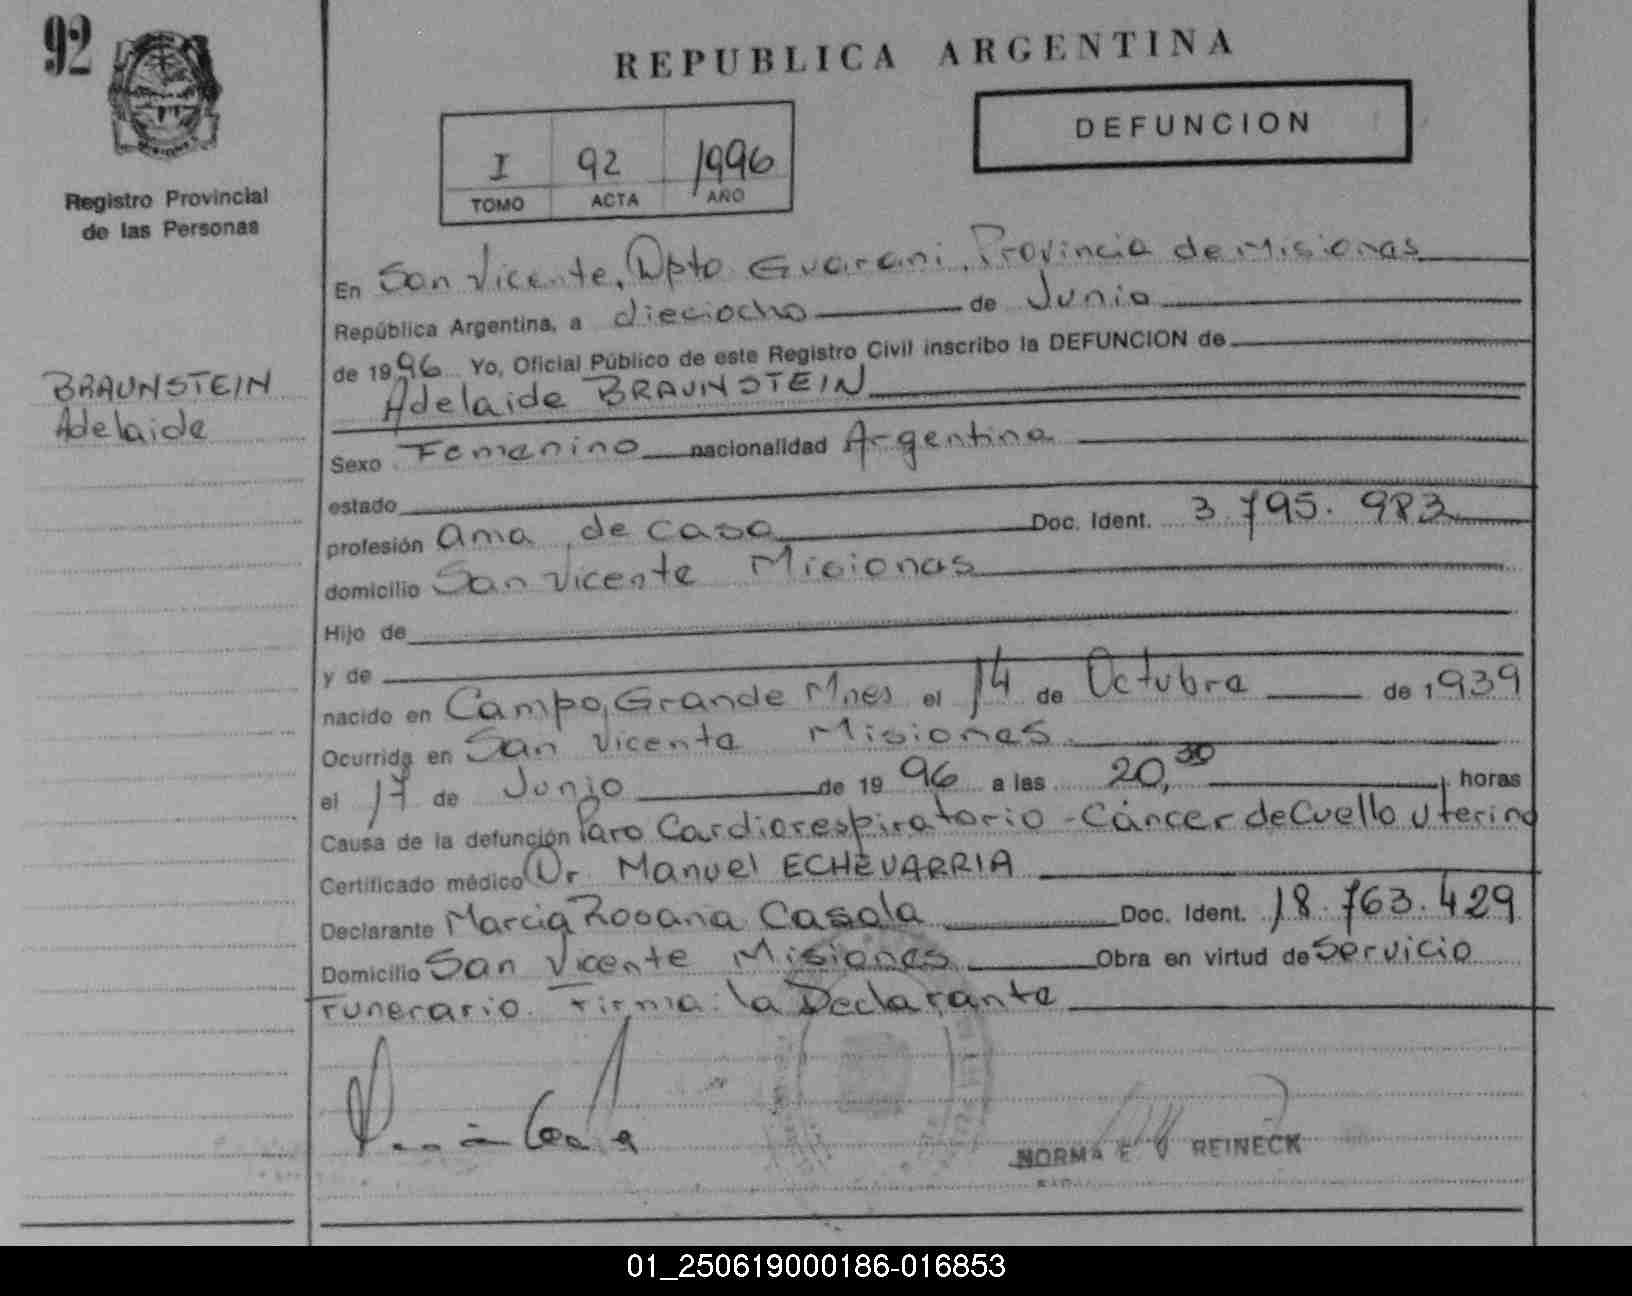 92
REPUBLICA ARGENTINA
DEFUNCION
I 92 1996
TOMO ACTA AÑO
Registro Provincial
de las Personas
BRAUNSTEIN
Adelaide
En San Vicente, Dpto Guarani, Provincia de Misiones
República Argentina, a dieciocho de Junio
de 1996 Yo, Oficial Público de este Registro Civil inscribo la DEFUNCION de
Adelaide BRAUNSTEIN
Sexo Femenino nacionalidad Argentina
estado
profesión ama de casa Doc. Ident. 3.795.983
domicilio San Vicente Misiones
Hijo de
y de
nacido en Campo Grande Mnes el 14 de Octubre de 1939
Ocurrida en San Vicente Misiones
el 17 de Junio de 1996 a las 20,30 horas
Causa de la defunción Paro Cardiorespiratorio - Cáncer de Cuello Uterino
Certificado médico Dr. Manuel ECHEVARRIA
Declarante Marcia Rosana Casola Doc. Ident. 18.763.429
Domicilio San Vicente Misiones Obra en virtud de Servicio
Funerario. Firma: la Declarante
NORMA E REINECK
01_250619000186-016853